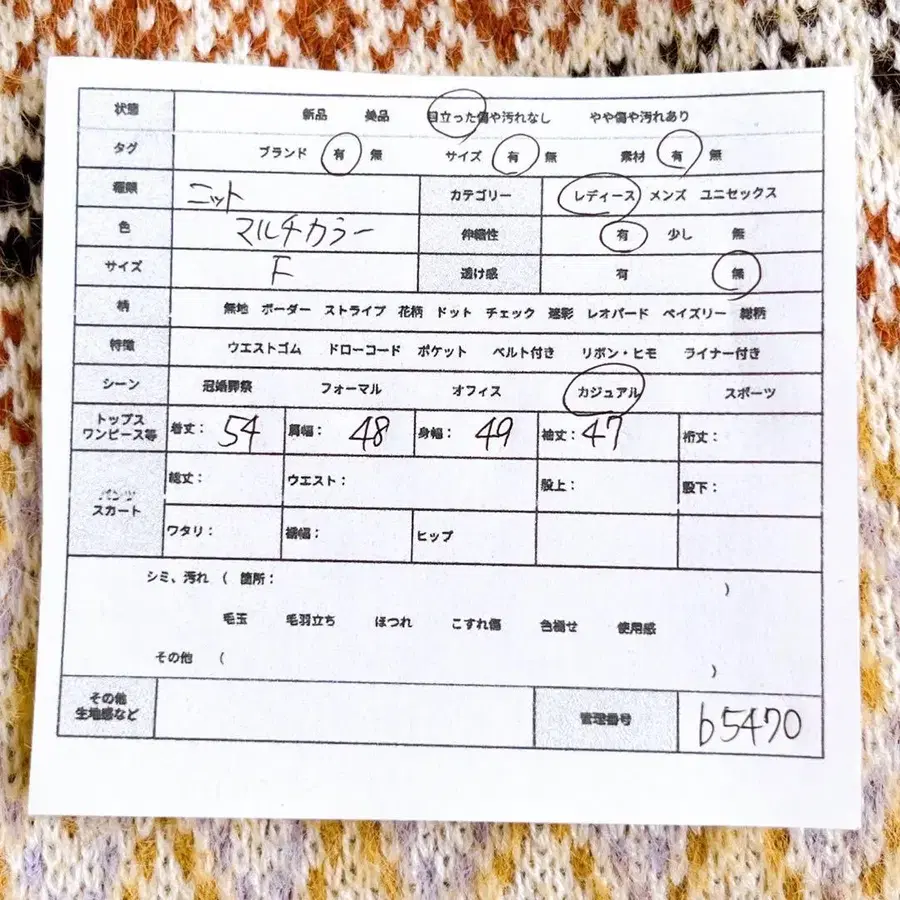 状態 新品 美品 目立った傷や汚れなし やや傷や汚れあり
タグ ブランド 有 無 サイズ 有 無 素材 有 無
種類 ニット カテゴリー レディース メンズ ユニセックス
色 マルチカラー 伸縮性 有 少し 無
サイズ F 透け感 有 無
柄 無地 ボーダー ストライプ 花柄 ドット チェック 迷彩 レオパード ペイズリー 総柄
特徴 ウエストゴム ドローコード ポケット ベルト付き リボン・ヒモ ライナー付き
シーン 冠婚葬祭 フォーマル オフィス カジュアル スポーツ
トップス
ワンピース等 着丈： 54 肩幅： 48 身幅： 49 袖丈： 47 裄丈：
パンツ
スカート 総丈： ウエスト： 股上： 股下：
ワタリ： 裾幅： ヒップ
シミ、汚れ （ 箇所： ）
毛玉 毛羽立ち ほつれ こすれ傷 色褪せ 使用感
その他 （ ）
その他
生地感など 管理番号 b5470